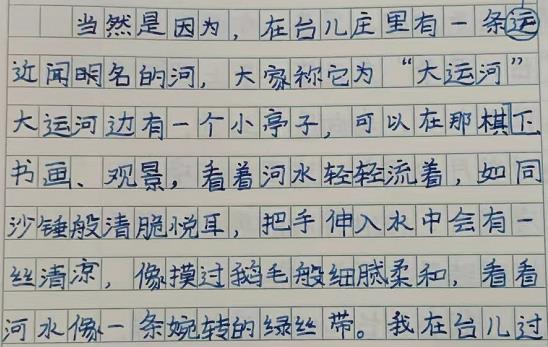 当然是因为，在台儿庄里有一条远
近闻明名的河，大家称它为“大运河”
大运河边有一个小亭子，可以在那棋下
书画、观景，看着河水轻轻流着，如同
沙锤般清脆悦耳，把手伸入水中会有一
丝清凉，像摸过鹅毛般细腻柔和，看看
河水像一条婉转的绿丝带。我在台儿过